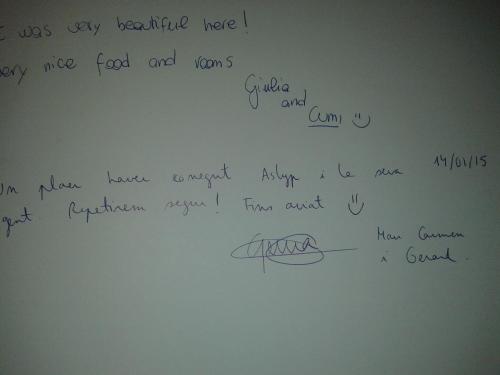 I was very beautiful here!
very nice food and rooms
Giulia
and
Cumi
14/01/15
Un plaer haver conegut Aslyp i la seva
gent Repetirem segur! Fins aviat
Mari Carmen
i Gerard.